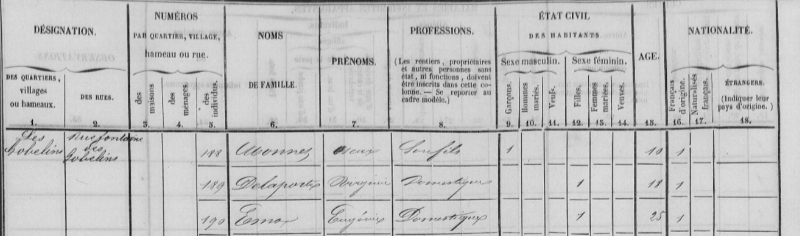 DÉSIGNATION.
DES QUARTIERS, villages ou hameaux.
DES RUES.
NUMÉROS
PAR QUARTIER, VILLAGE, hameau ou rue.
des maisons
des ménages.
des individus.
NOMS
DE FAMILLE.
PRÉNOMS.
PROFESSIONS.
(Les rentiers, propriétaires
et autres personnes sans
état, ni fonctions, doivent
être inscrits dans cette co-
lonne. — Se reporter au
cadre modèle.)
ÉTAT CIVIL
DES HABITANTS
Sexe masculin.
Sexe féminin.
Garçons.
Hommes mariés.
Veufs.
Filles.
Femmes mariées.
Veuves.
AGE.
NATIONALITÉ.
Français d'origine.
Naturalisés français.
ÉTRANGERS.
(Indiquer leur
pays d'origine.)
1. 2. 3. 4. 5. 6. 7. 8. 9. 10. 11. 12. 13. 14. 15. 16. 17. 18.
des Gobelins
des Gobelins
188 son fils 1 10 1
189 Delaporte Domestique 1 18 1
190 Eugénie Domestique 1 25 1